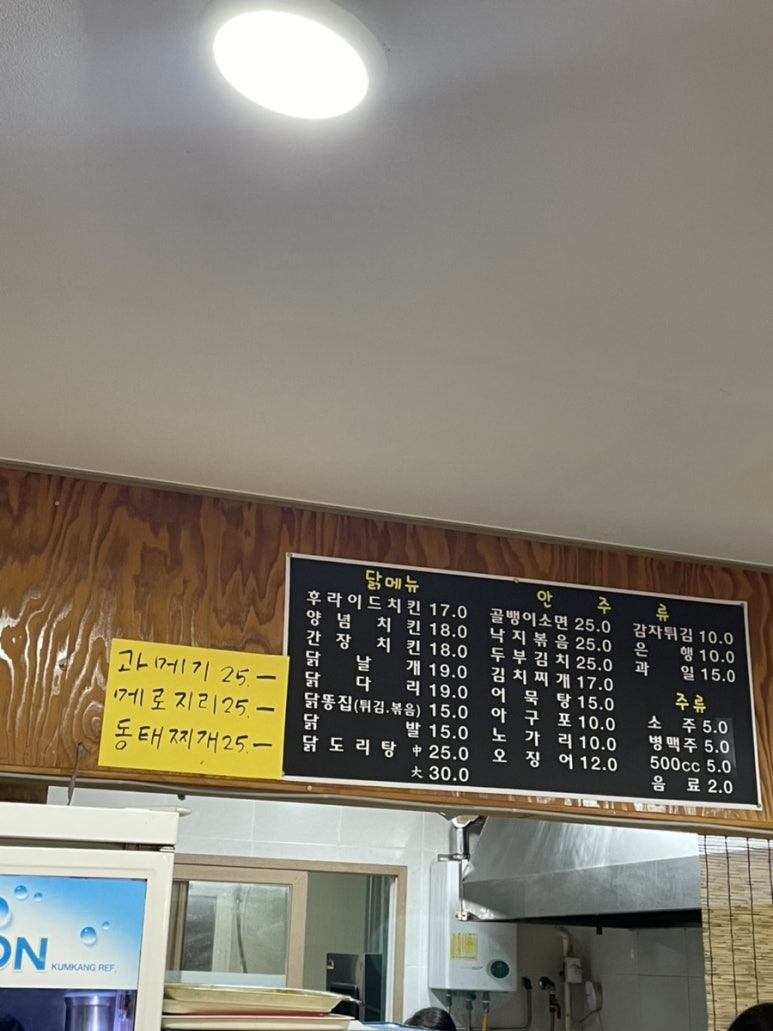 닭메뉴
후라이드치킨 17.0
양념치킨 18.0
간장치킨 18.0
닭날개 19.0
닭다리 19.0
닭똥집(튀김.볶음) 15.0
닭발 15.0
닭도리탕 中 25.0
大 30.0
안주류
골뱅이소면 25.0
낙지볶음 25.0
두부김치 25.0
김치찌개 17.0
어묵탕 15.0
아구포 10.0
노가리 10.0
오징어 12.0
감자튀김 10.0
은행 10.0
과일 15.0
주류
소주 5.0
병맥주 5.0
500cc 5.0
음료 2.0
과메기 25.-
메로지리 25.-
동태찌개 25.-
ON
KUMKANG REF.